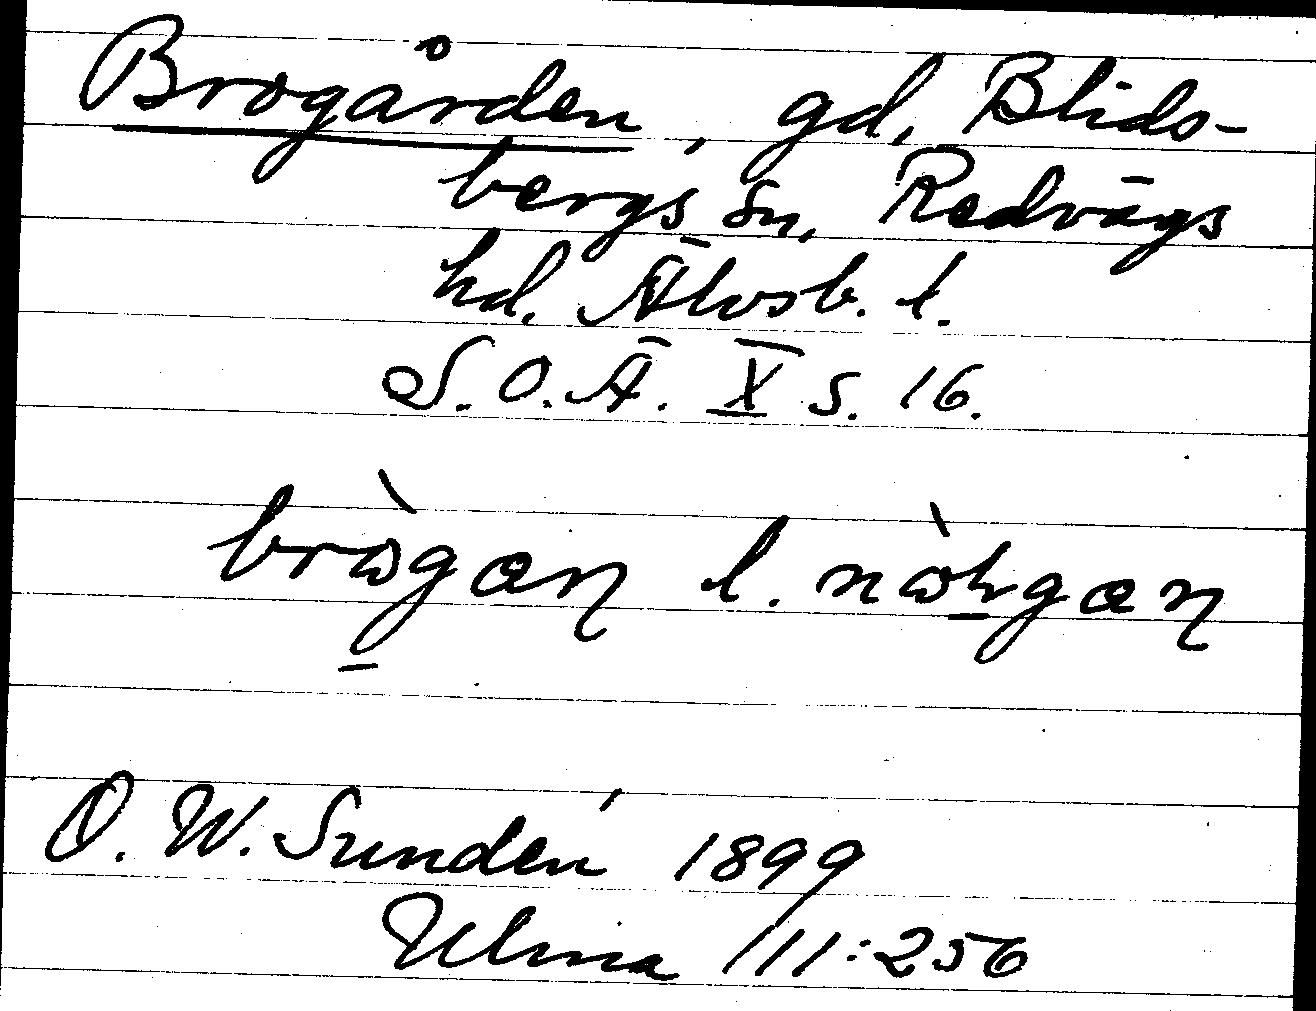 Brogården, gd, Blids-
bergs sn, Redvägs
hd. Älvsb. l.
S. O. Ä. X s. 16.
l.
O. W. Sundén 1899
Ulma 111:256